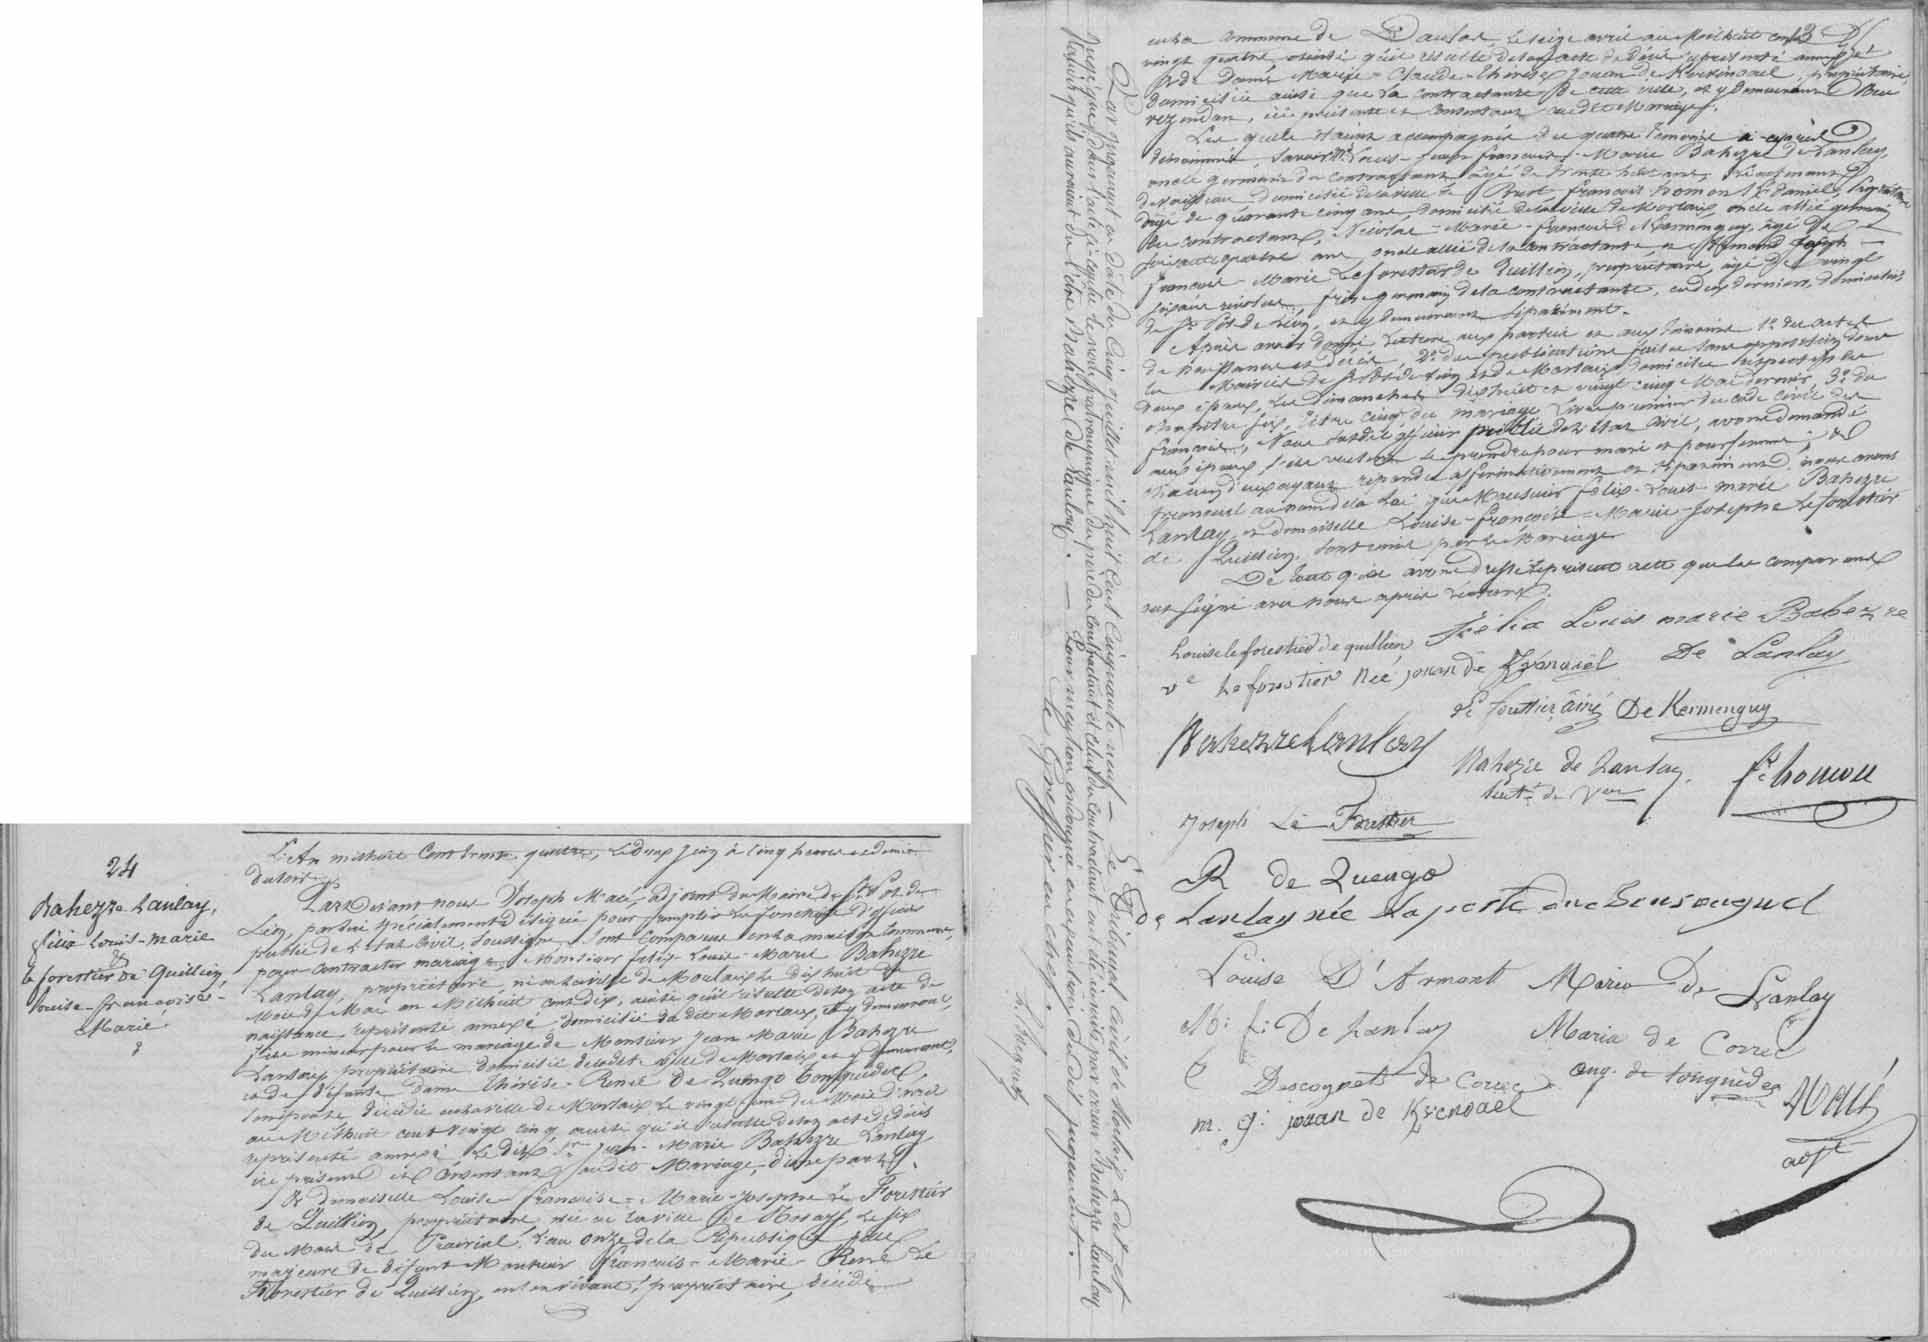 24
Bahezre Lanlay,
félix Louis-marie
&
le forestier de Quillien
louise-françoise-
Marie
L'An mil huit Cent trente quatre, le deux Juin à cinq heures et demie
du soir.
Pardevant nous Joseph Macé, adjoint du Maire de St Pol de
Léon, par lui spécialement délégué pour remplir les fonctions d'officier
public de l'état Civil, soussigné, sont comparus en la maison Commune,
pour contracter mariage, Monsieur félix-Louis-Marie Bahezre
Lanlay, propriétaire, né en la ville de Morlaix le dix huit du
Mois de Mai an Mil huit cent dix, ainsi qu'il résulte de son acte de
naissance, représenté annexé, domicilié dudit Morlaix, et y demeurant,
fils mineur pour le mariage de Monsieur Jean Marie Bahezre
Lanlay, propriétaire domicilié de ladite ville de Morlaix et y demeurant,
et de défunte dame Thérèse-Renée de Quengo Tonquédec,
son épouse décédée en la ville de Morlaix le vingt du Mois d'avril
an Mil huit cent vingt cinq ainsi qu'il résulte de son acte de décès
représenté annexé. Ledit Sr Jean-Marie Bahezre Lanlay
ici présent et Consentant audit Mariage, d'une part;
& demoiselle Louise françoise-Marie-Josephe Le Forestier
de Quillien, propriétaire, née en la ville de Roscoff, le six
du Mois de Prairial, l'an onze de la République fille
majeure de défunt Monsieur françois-Marie René Le
Forestier de Quillien, en son vivant, propriétaire, décédé
en la commune de Daoulas, le seize avril an Mil huit cent
vingt quatre ainsi qu'il résulte de son acte de décès représenté annexé;
& de Dame Marie-Claude-Thérèse Jouan de Kervénoael, propriétaire,
domiciliée ainsi que la contractante de cette ville, et y demeurant
, ici présente et consentant audit Mariage.
Lesquels étaient accompagnés des quatre témoins ci-après
dénommés, Savoir Mrs Louis-françois-Marie Bahezre de Lanlay,
oncle germain du contractant, âgé de trente huit ans, Lieutenant
de vaisseau domicilié de la ville de Brest, françois homon, propriétaire
âgé de quarante cinq ans, domicilié de la ville de Morlaix, oncle allié germain
du contractant, Nicolas-Marie-françois de Kermenguy, âgé de
soixante quatre ans, oncle allié de la contractante, et Armand Joseph
françois-Marie Le forestier de Quillien, propriétaire, âgé de vingt
six ans révolus, frère germain de la contractante, ces deux derniers, domiciliés
de St Pol de Léon, et y demeurant séparément.
Après avoir donné lecture aux parties et aux témoins 1º des actes
de naissance et décès, 2º des publications faites sans opposition devant
les Mairies de St Pol de Léon et de Morlaix, domiciles respectifs des
deux époux, les dimanches dix huit et vingt cinq Mai dernier, 3º du
chapitre six, titre cinq du mariage Livre premier du code civil des
français; Nous susdit officier public de l'état Civil, avons demandé
aux époux s'ils veulent se prendre pour mari et pour femme;
chacun d'eux ayant répondu affirmativement et séparément, nous avons
prononcé au nom de la Loi que Monsieur félix-Louis-marie Bahezre
Lanlay, et demoiselle Louise-françoise-Marie-Josephe Le forestier
de Quillien, sont unis par le Mariage.
De tout quoi avons dressé le présent acte que les comparants
ont signé avec nous après lecture.
Louise leforestier de quillien Félix Louis marie Bahezre
De Lanlay
ve Leforestier Née jouan de Kvénoaël
Le forestier ainé De Kermenguy
Bahezre Lanlay
Bahezre de Lanlay.
Lieut. de Veau
f. homon
Joseph Le Forestier
R de Quengo
de Lanlay née
Louise D'Armont Marie De Lanlay
M. f. De Lanlay Maria de Correc
Descognets de Correc aug. de tonquédec
m. g. jouan de Kvenoaël
Macé
adjt
Par Jugement en date du cinq juillet mil huit cent cinquante neuf — Le Tribunal civil de Morlaix a décrété
que dans l'acte ci-contre le nom patronymique du père du contractant et celui du contractant ont été écrits par erreur Bahezre Lanlay
tandis qu'ils auraient dû l'être Bahezre de Lanlay. — Pour mention en exécution dudit jugement.
Le Greffier en chef.